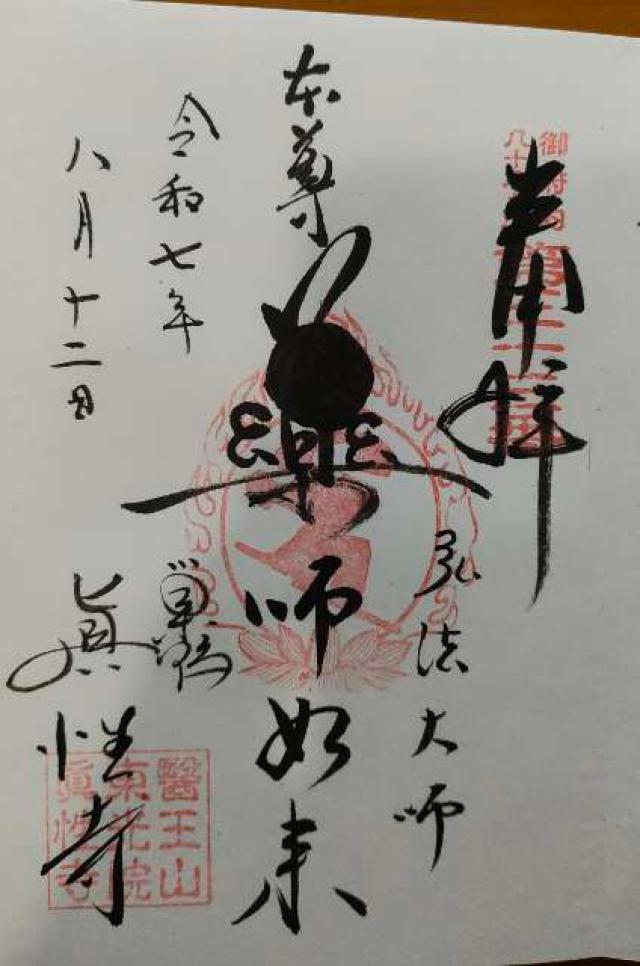 奉拝
弘法大師
本尊
薬師如来
令和七年
八月十二日
巣鴨
眞性寺
御府内
八十八
第三十三番
醫王山
東光院
眞性寺